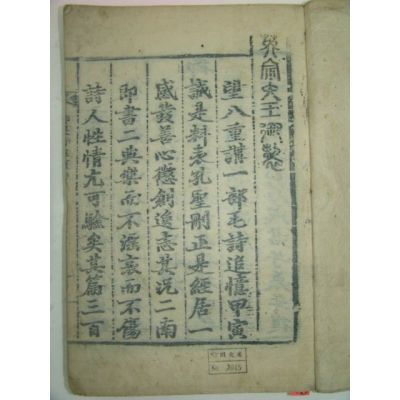 英宗大王御製
望八重講一部毛詩追憶甲寅
誠是料表孔聖刪正是經居一
感發善心懲創逸志其況二南
即書二典樂而不淫哀而不傷
詩人性情尤可驗矣其篇三百